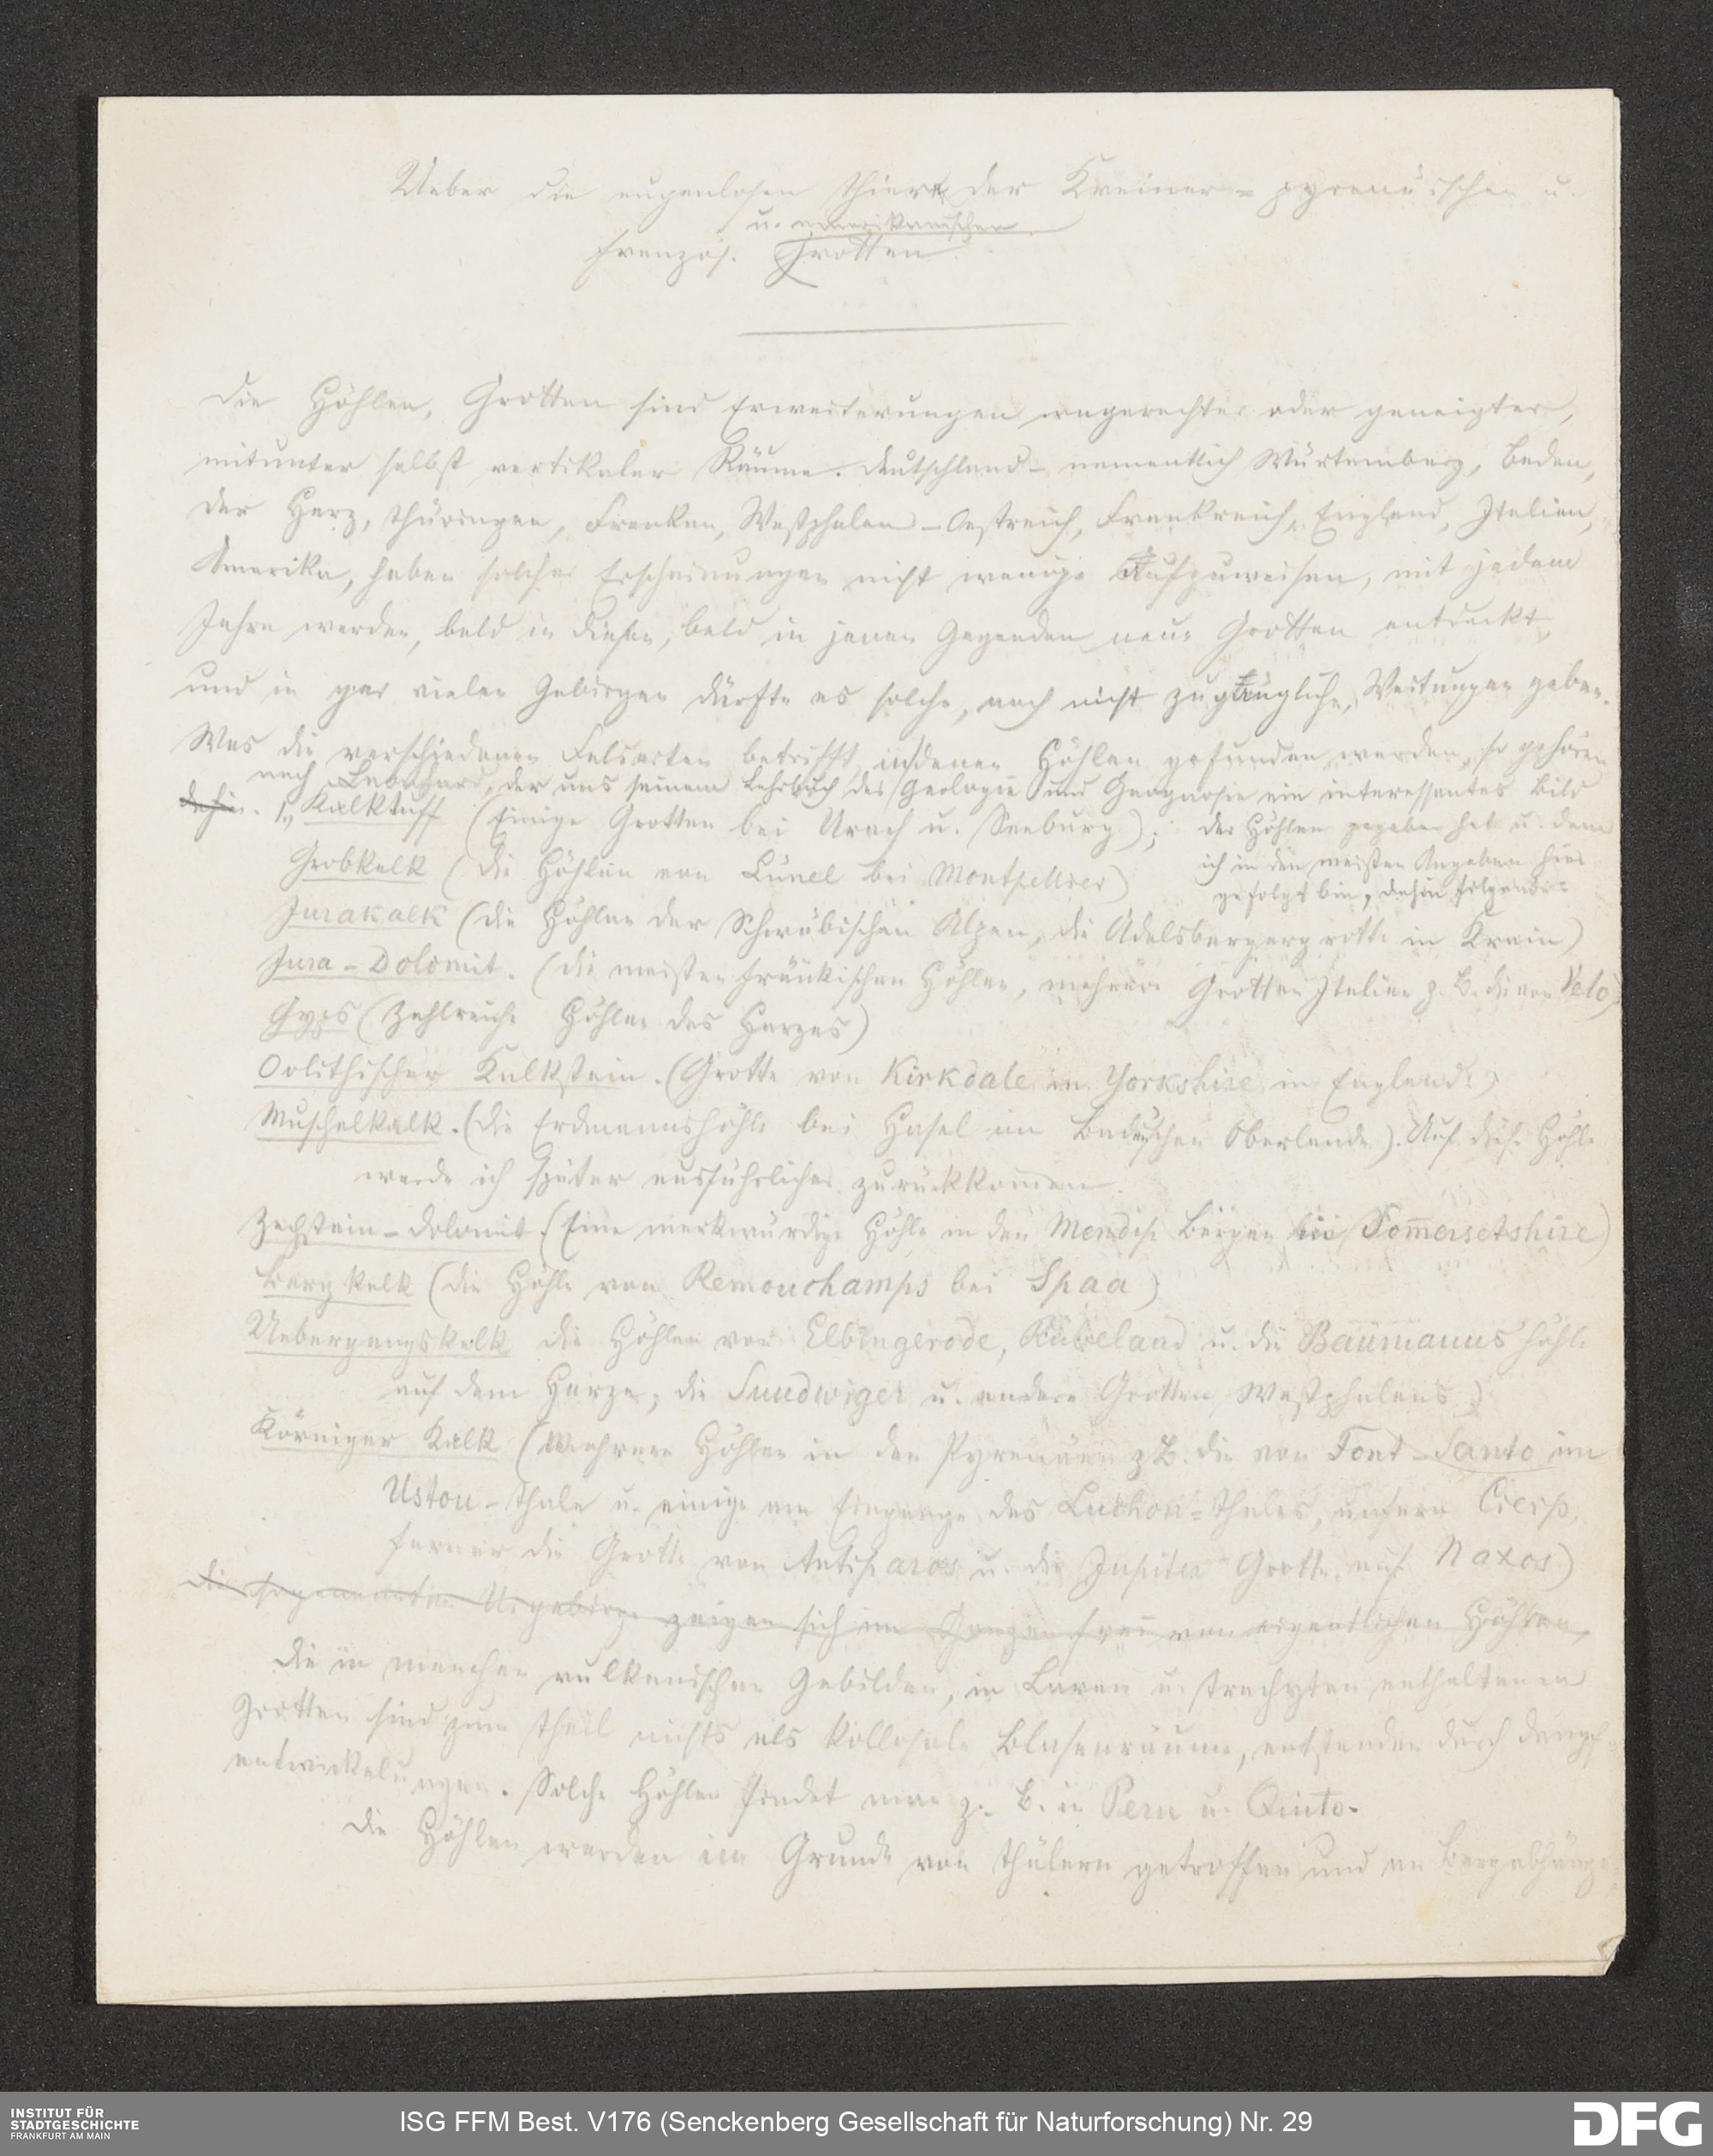 Ueber die augenlosen Thiere der Krainer- pyrenäischen u.
u. amerikanischen
französ. Grotten.
Die Höhlen, Grotten sind Erweiterungen wagerechter oder geneigter,
mitunter selbst vertikaler Räume. Deutschland - namentlich Würtemberg, Baden,
der Harz, Thüringen, Franken, Westphalen - Oestreich, Frankreich, England, Italien,
Amerika, haben solcher Erscheinungen nicht wenige aufzuweisen, mit jedem
Jahre werden, bald in diesen, bald in jenen Gegenden neue Grotten entdeckt,
und in gar vielen Gebirgen dürfte es solche, noch nicht zugängliche, Weitungen geben.
Was die verschiedenen Felsarten betrifft, in denen Höhlen gefunden werden, so gehören
nach Leonhard, der uns seinem Lehrbuch der Geologie und Geognosie ein interessantes Bild
dahin. 1., Kalktuff (Einige Grotten bei Urach u. Seeburg); der Höhlen gegeben hat u. dem
Grobkalk (die Höhlen von Lünel bei Montpellier) ich in den meisten Angaben hier
gefolgt bin, dahin folgende:
Jurakalk (die Höhlen der Schwäbischen Alpen, die Adelsbergergrotte in Krain)
Jura-Dolomit. (die meisten fränkischen Höhlen, mehrere Grotten Italien z. B. die von Velo)
Gyps (Zahlreiche Höhlen des Harzes)
Oolithischer Kalkstein. (Grotte von Kirkdale in Yorkshire in England.)
Muschelkalk. (die Erdmannshöhle bei Hasel im Badischen Oberlande). Auf diese Höhle
werde ich später ausführlicher zurückkom̄en.
Zechstein-Dolomit. (Eine merkwürdige Höhle in den Mendip Bergen bei Som̄ersetshire)
Bergkalk (die Höhle von Remouchamps bei Spaa)
Uebergangskalk die Höhlen von Elbingerode, Rübeland u. die Baumanns höhle
auf dem Harze; die Sundwiger u. andere Grotten Westphalens)
Körniger Kalk (Mehrere Höhlen in den Pyrenäen z. B. die von Font-Santo im
Ustou-Thale u. einige am Eingange des Luchon-Thales, unfern Cierp,
ferner die Grotte von Antiparos u. die Jupiter Grotte auf Naxos)
Die sogenannten Urgebirge zeigen sich im Ganzen frei von eigentlichen Höhlen,
Die in manchen vulkanischen Gebilden, in Laven u. Trachyten enthaltenen
Grotten sind zum Theil nichts als kollosale Blasenräume, entstanden durch Dampf-
entwickelungen. Solche Höhlen findet man z. B. in Peru u. Quito.
Die Höhlen werden im Grunde von Thälern getroffen und an Bergabhängen
INSTITUT FÜR
STADTGESCHICHTE
FRANKFURT AM MAIN
ISG FFM Best. V176 (Senckenberg Gesellschaft für Naturforschung) Nr. 29
DFG